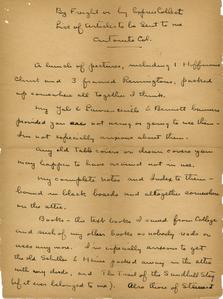 By Freight or by Express Collect
List of Articles to be Sent to me
Antonito Col.
A bunch of pictures, including 1 Hoffmann
Christ and 3 framed Remingtons, packed
up somewhere all together I think.
My Yale & Purdue smith & Bennett banners
provided you are not using or going to use them -
I'm not especially anxious about them.
Any old Table covers or dresser covers you
may happen to have around not in use.
My complete notes and Index to them -
bound in black boards and altogether somewhere
in the attic.
Books - the text books I saved from College
and such of my other books as nobody reads or
uses any more. I'm especially anxious to get
the old Schiller & Heine packed away in the attic
with my duds, and The Trail of the Sandhill Stag
(if it ever belonged to me). Also those of Stewart